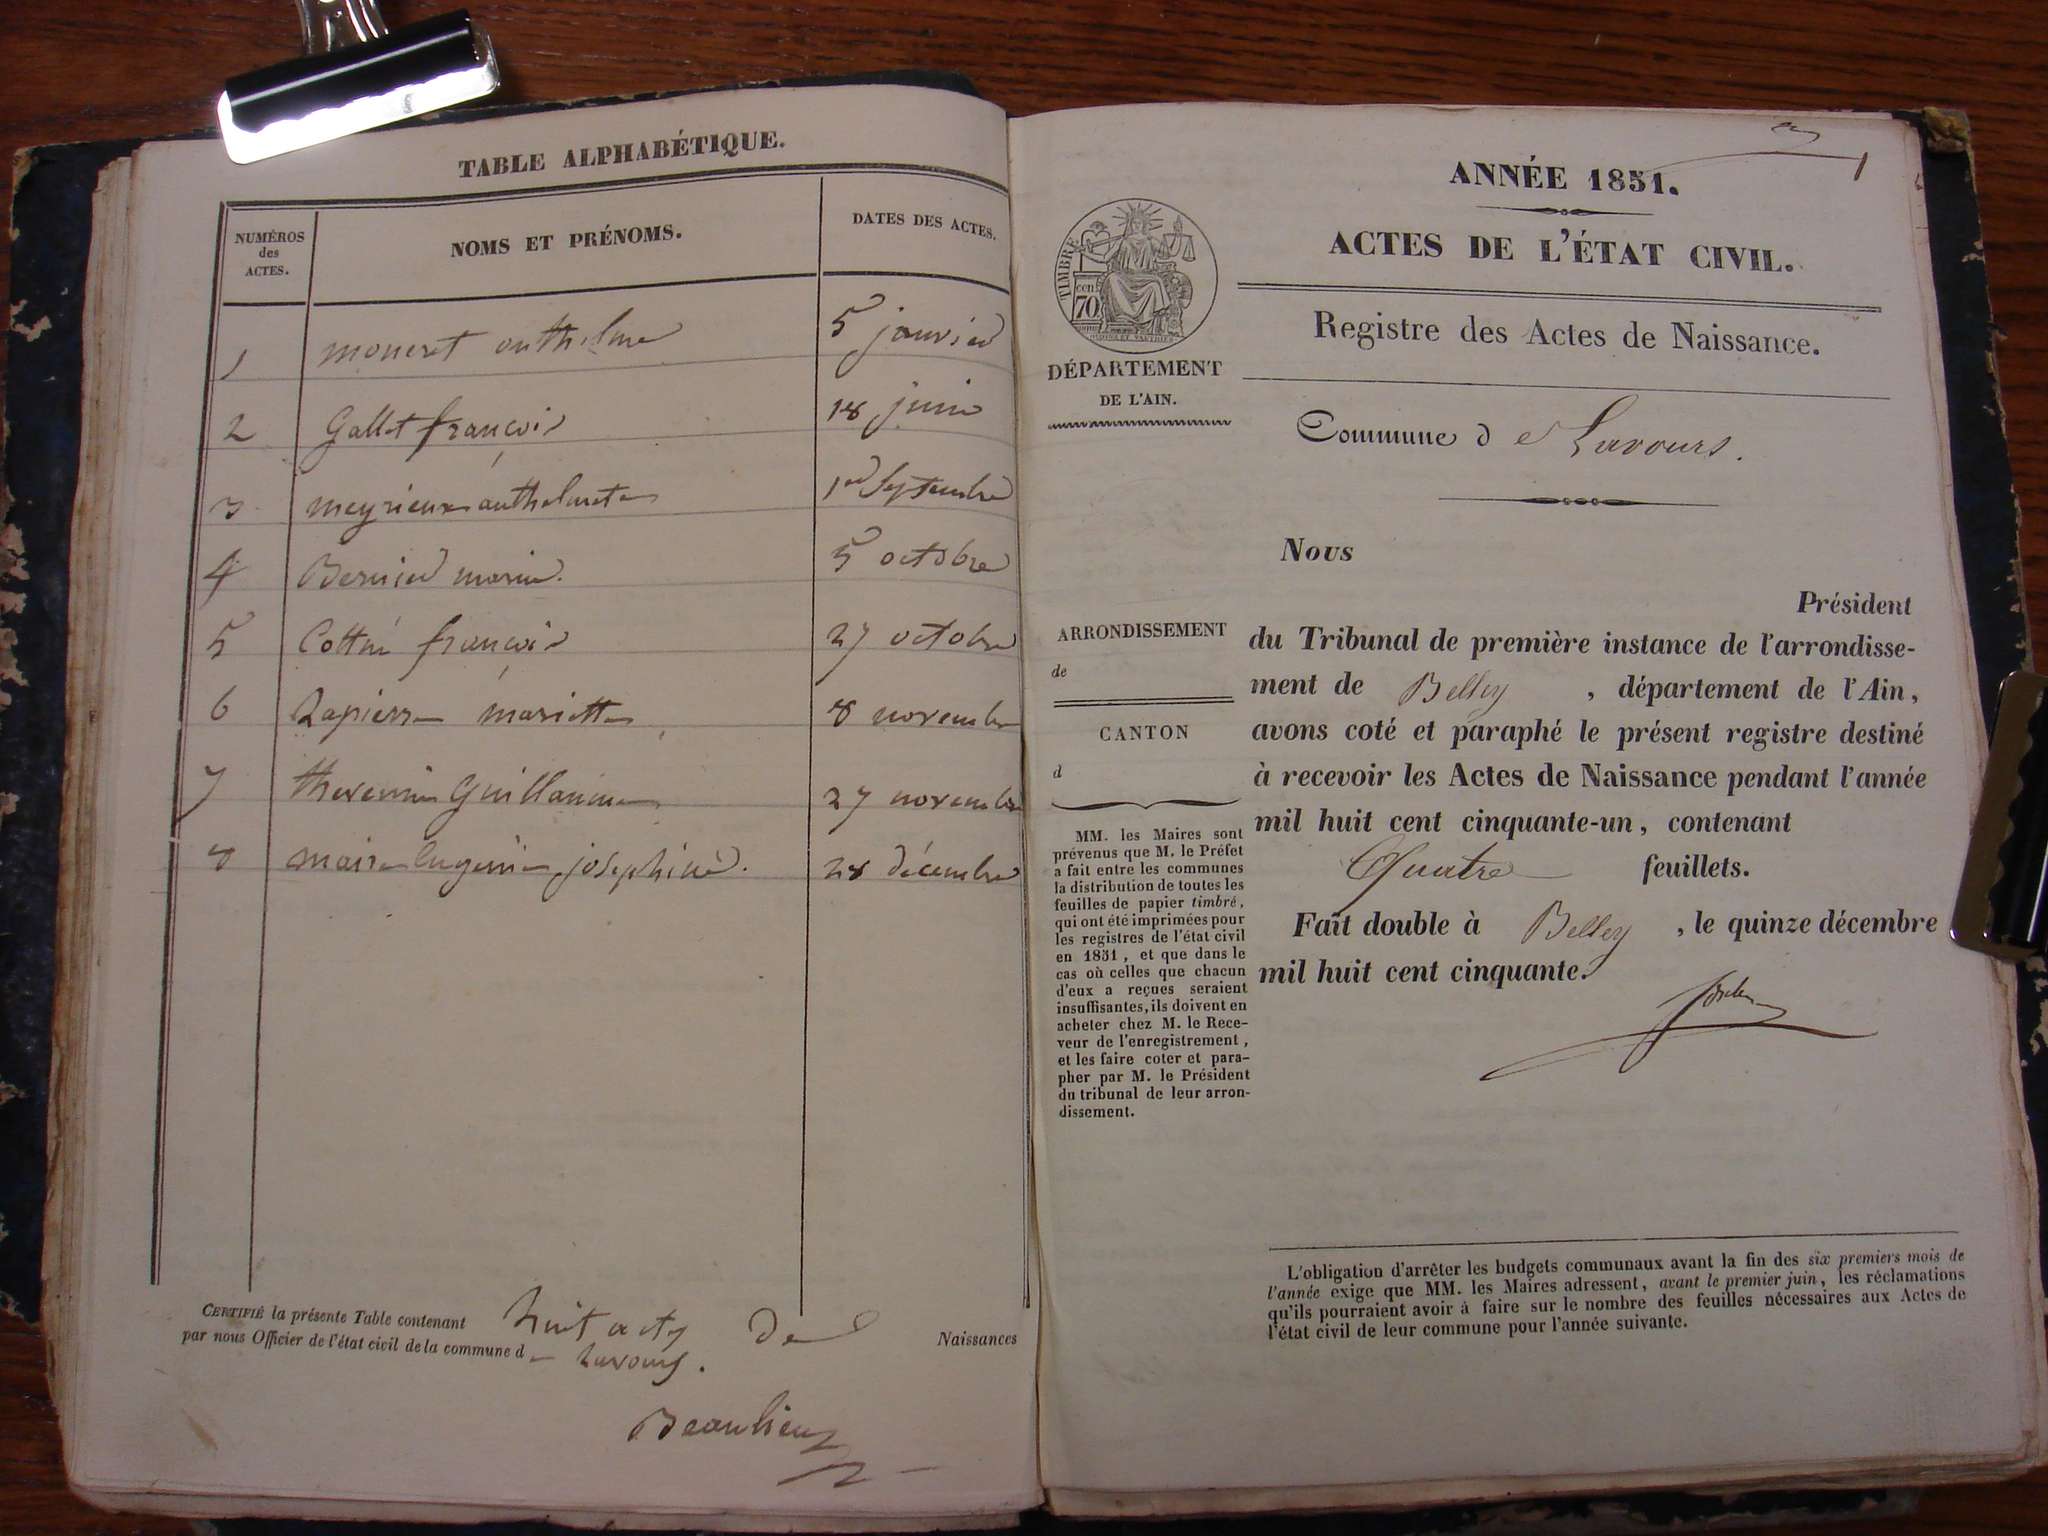 TABLE ALPHABÉTIQUE.
NUMÉROS des ACTES.
NOMS ET PRÉNOMS.
DATES DES ACTES.
1 moneret anthelme 5 janvier
2 Gallet françois 18 juin
3 meyrieux anthelmete 1er Septembre
4 Bernier marie. 5 octobre
5 Cottin françois 27 octobre
6 Lapierre mariette 8 novembre
7 thevenin Guillaume 27 novembre
8 maire Eugenie josephine. 28 décembre
CERTIFIÉ la présente Table contenant huit actes De Naissances
par nous Officier de l'état civil de la commune de Lavours.
Beaulieu
1
ANNÉE 1851.
ACTES DE L'ÉTAT CIVIL.
TIMBRE
70 cen
Registre des Actes de Naissance.
DÉPARTEMENT
DE L'AIN.
Commune de Lavours.
Nous
Président
ARRONDISSEMENT
de
CANTON
d
du Tribunal de première instance de l'arrondisse-
ment de Belley, département de l'Ain,
avons coté et paraphé le présent registre destiné
à recevoir les Actes de Naissance pendant l'année
mil huit cent cinquante-un, contenant
Quatre feuillets.
Fait double à Belley, le quinze décembre
mil huit cent cinquante.
MM. les Maires sont
prévenus que M. le Préfet
a fait entre les communes
la distribution de toutes les
feuilles de papier timbré,
qui ont été imprimées pour
les registres de l'état civil
en 1851, et que dans le
cas où celles que chacun
d'eux a reçues seraient
insuffisantes, ils doivent en
acheter chez M. le Rece-
veur de l'enregistrement,
et les faire coter et para-
pher par M. le Président
du tribunal de leur arron-
dissement.
L'obligation d'arrêter les budgets communaux avant la fin des six premiers mois de
l'année exige que MM. les Maires adressent, avant le premier juin, les réclamations
qu'ils pourraient avoir à faire sur le nombre des feuilles nécessaires aux Actes de
l'état civil de leur commune pour l'année suivante.